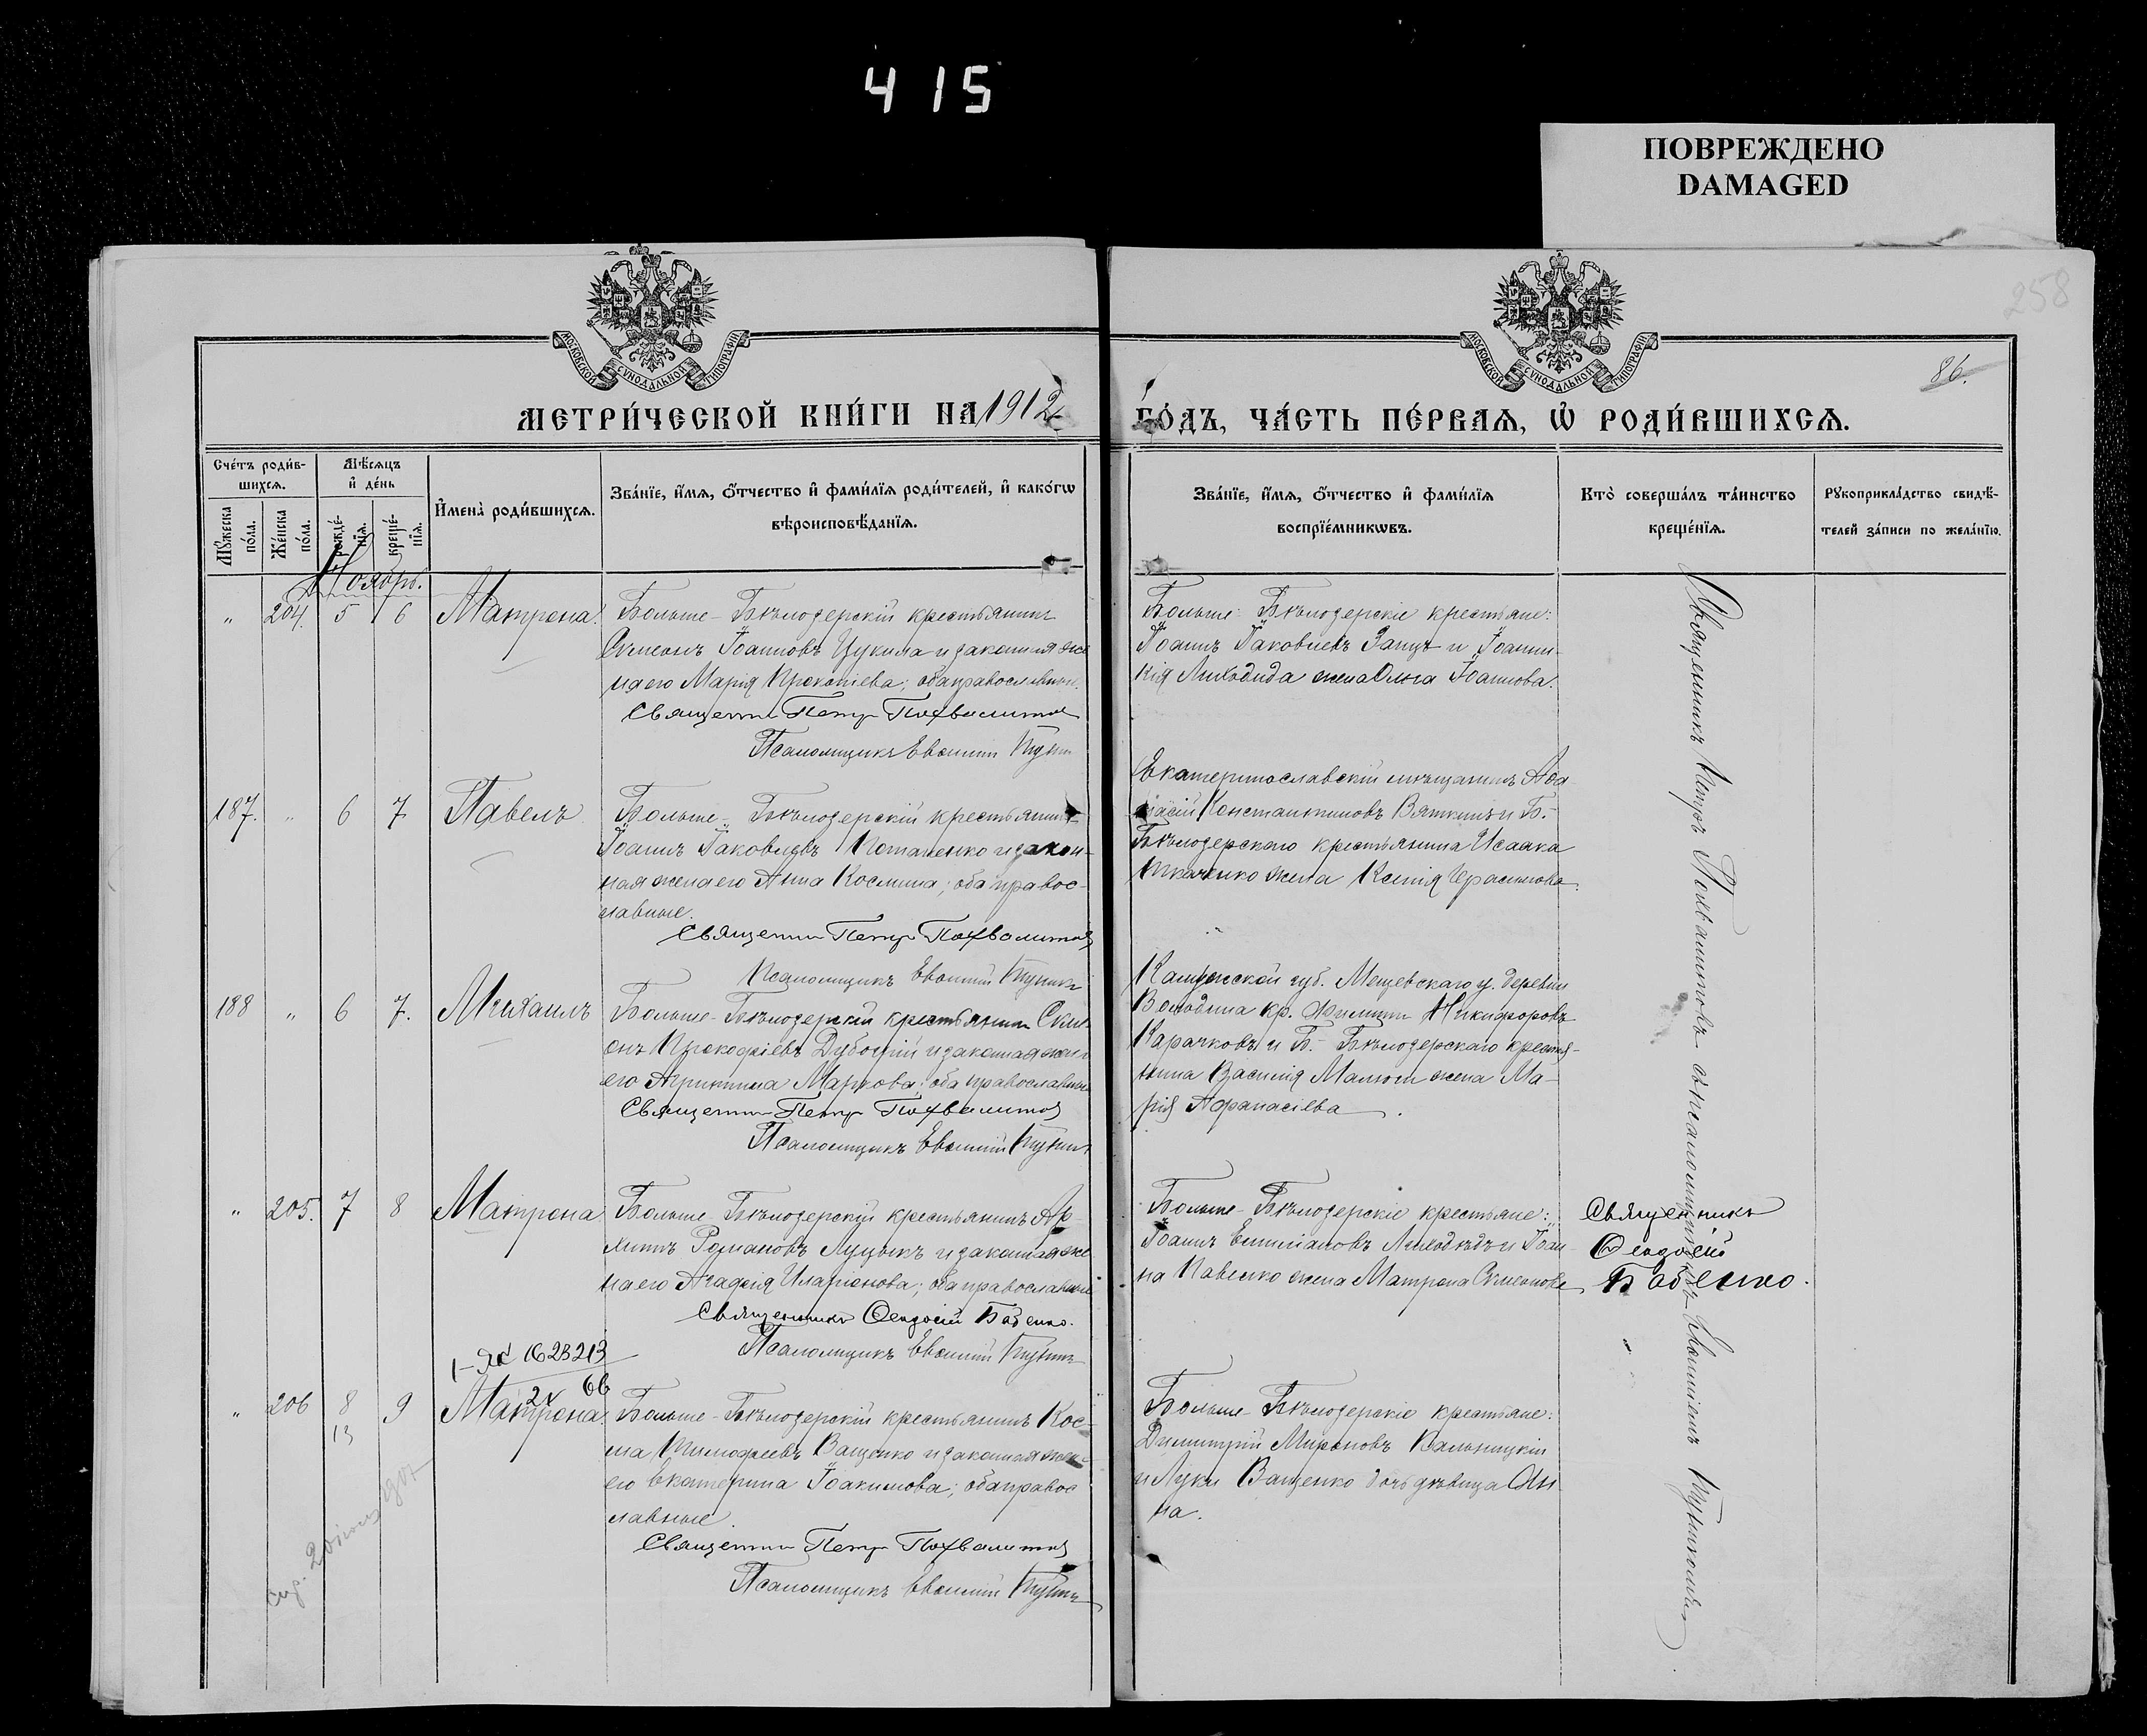 415
ПОВРЕЖДЕНО
DAMAGED
258
МОСКОВСКОЙ СѴНОДАЛЬНОЙ ТИПОГРАФІИ
МОСКОВСКОЙ СѴНОДАЛЬНОЙ ТИПОГРАФІИ
86.
МЕТРИ́ЧЕСКОЙ КНИ́ГИ НА 1912
ГО́ДЪ, ЧА́СТЬ ПЕ́РВАѦ, Ѡ҆ РОДИ́ВШИХСѦ.
Сче́тъ роди́в-
шихсѧ.
Мꙋ́жеска по́ла.
Же́нска по́ла.
Мѣ́сѧцъ
и҆ де́нь
рожде́-нїѧ.
креще́-нїѧ.
И҆мена̀ роди́вшихсѧ.
Зва́нїе, и҆́мѧ, ѻ҆́тчество и҆ фами́лїѧ роди́телей, и҆ како́гѡ
вѣроисповѣ́данїѧ.
Зва́нїе, и҆́мѧ, ѻ҆́тчество и҆ фами́лїѧ
воспрїе́мникѡвъ.
Кто̀ соверша́лъ та́инство
креще́нїѧ.
Рꙋкоприкла́дство свидѣ́-
телей за́писи по жела́нїю.
Ноябрь.
" 204. 5 6 Матрона.
Больше-Бѣлозерскій крестьянинъ
Симеонъ Іоанновъ Цукила и законная же
на его Марія Прокопіева; оба православные.
Священ Петр Похвалитов
Псаломщикъ Евѳимій
Больше-Бѣлозерскіе крестьяне:
Іоаннъ Іаковлевъ Заяцъ и Іоанни-
кія Лиходида жена Ольга Іоаннова.
187. " 6 7 Павелъ
Больше-Бѣлозерскій крестьянинъ
Іоаннъ Іаковлевъ Потапенко и закон-
ная жена его Анна Космина; оба правос-
лавные.
Священ Петр Похвалитов
Псаломщикъ Евѳимій
Екатеринославскій мѣщанинъ
Константиновъ Вяткинъ и Б.-
Бѣлозерскаго крестьянина Исаака
Ткаченко жена Ксенія Герасимова.
188 " 6 7. Михаилъ
Больше-Бѣлозерскій крестьянин Симе
онъ Прокофіевъ и законная жена
его Агрипина Маркова; оба православные
Священ Петр Похвалитов
Псаломщикъ Евѳимій
Калужской губ. Мещевскаго у. деревни
Володина кр. Филиппъ Никифоровъ
Карачковъ и Б.-Бѣлозерскаго крестья-
нина Василія Малюги жена Ма-
рія Афанасіева.
" 205. 7 8 Матрона
Больше-Бѣлозерскій крестьянинъ Ар-
хиппъ Романовъ Луцыкъ и законная же
на его Агафія Иларіонова; оба православные
Священникъ Ѳеодосій Баденко.
Псаломщикъ Евѳимій
Больше-Бѣлозерскіе крестьяне:
Іоаннъ Емиліановъ Лиходѣдъ и Іоан-
на Павенко жена Матрона Симеонова
Священникъ
Ѳеодосій
Баденко.
1-ЯС 1623213
24 66
" 206 8 9 Матрона.
13
Больше-Бѣлозерскій крестьянинъ Кос-
ма Тимофеевъ Ващенко и законная жена
его Екатерина Іоакимова; оба правос
лавные.
Священ Петр Похвалитов
Псаломщикъ Евѳимій
Больше-Бѣлозерскіе крестьяне:
Димитрій Мироновъ Вальницкій
и Луки Ващенко дочь дѣвица Ан-
на.
Священникъ Петръ Похвалитовъ съ псаломщикомъ Евѳиміемъ